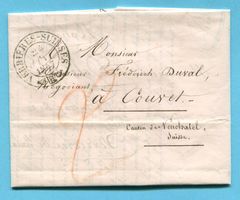 VERRIÈRES-SUISSES
Monsieur
Frédérich Duval,
Négociant,
à Couvet.
Canton de Neuchatel
Suisse.